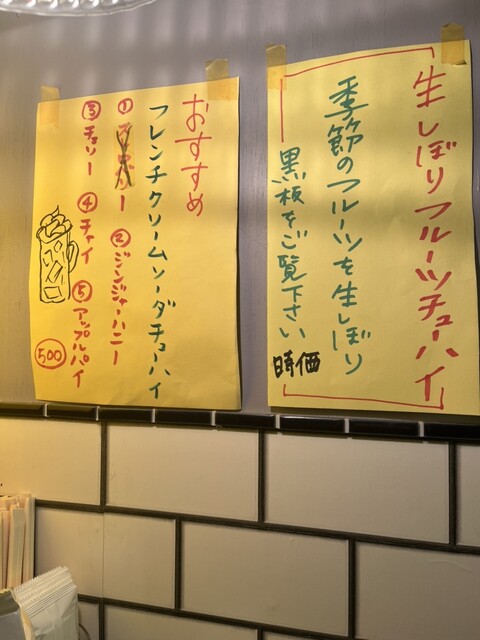 生しぼりフルーツチューハイ
季節のフルーツを生しぼり
黒板をご覧下さい
時価
おすすめ
フレンチクリームソーダチューハイ
①
②ジンジャーハニー
③チェリー
④チャイ
⑤アップルパイ
500